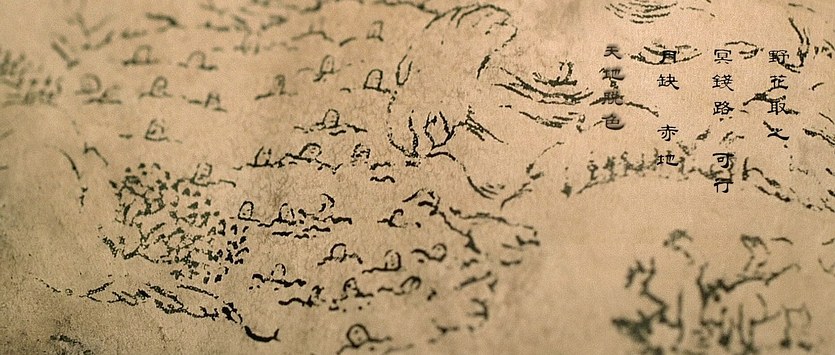 野花取之
冥錢路 可行
月缺 赤地
天地脫色